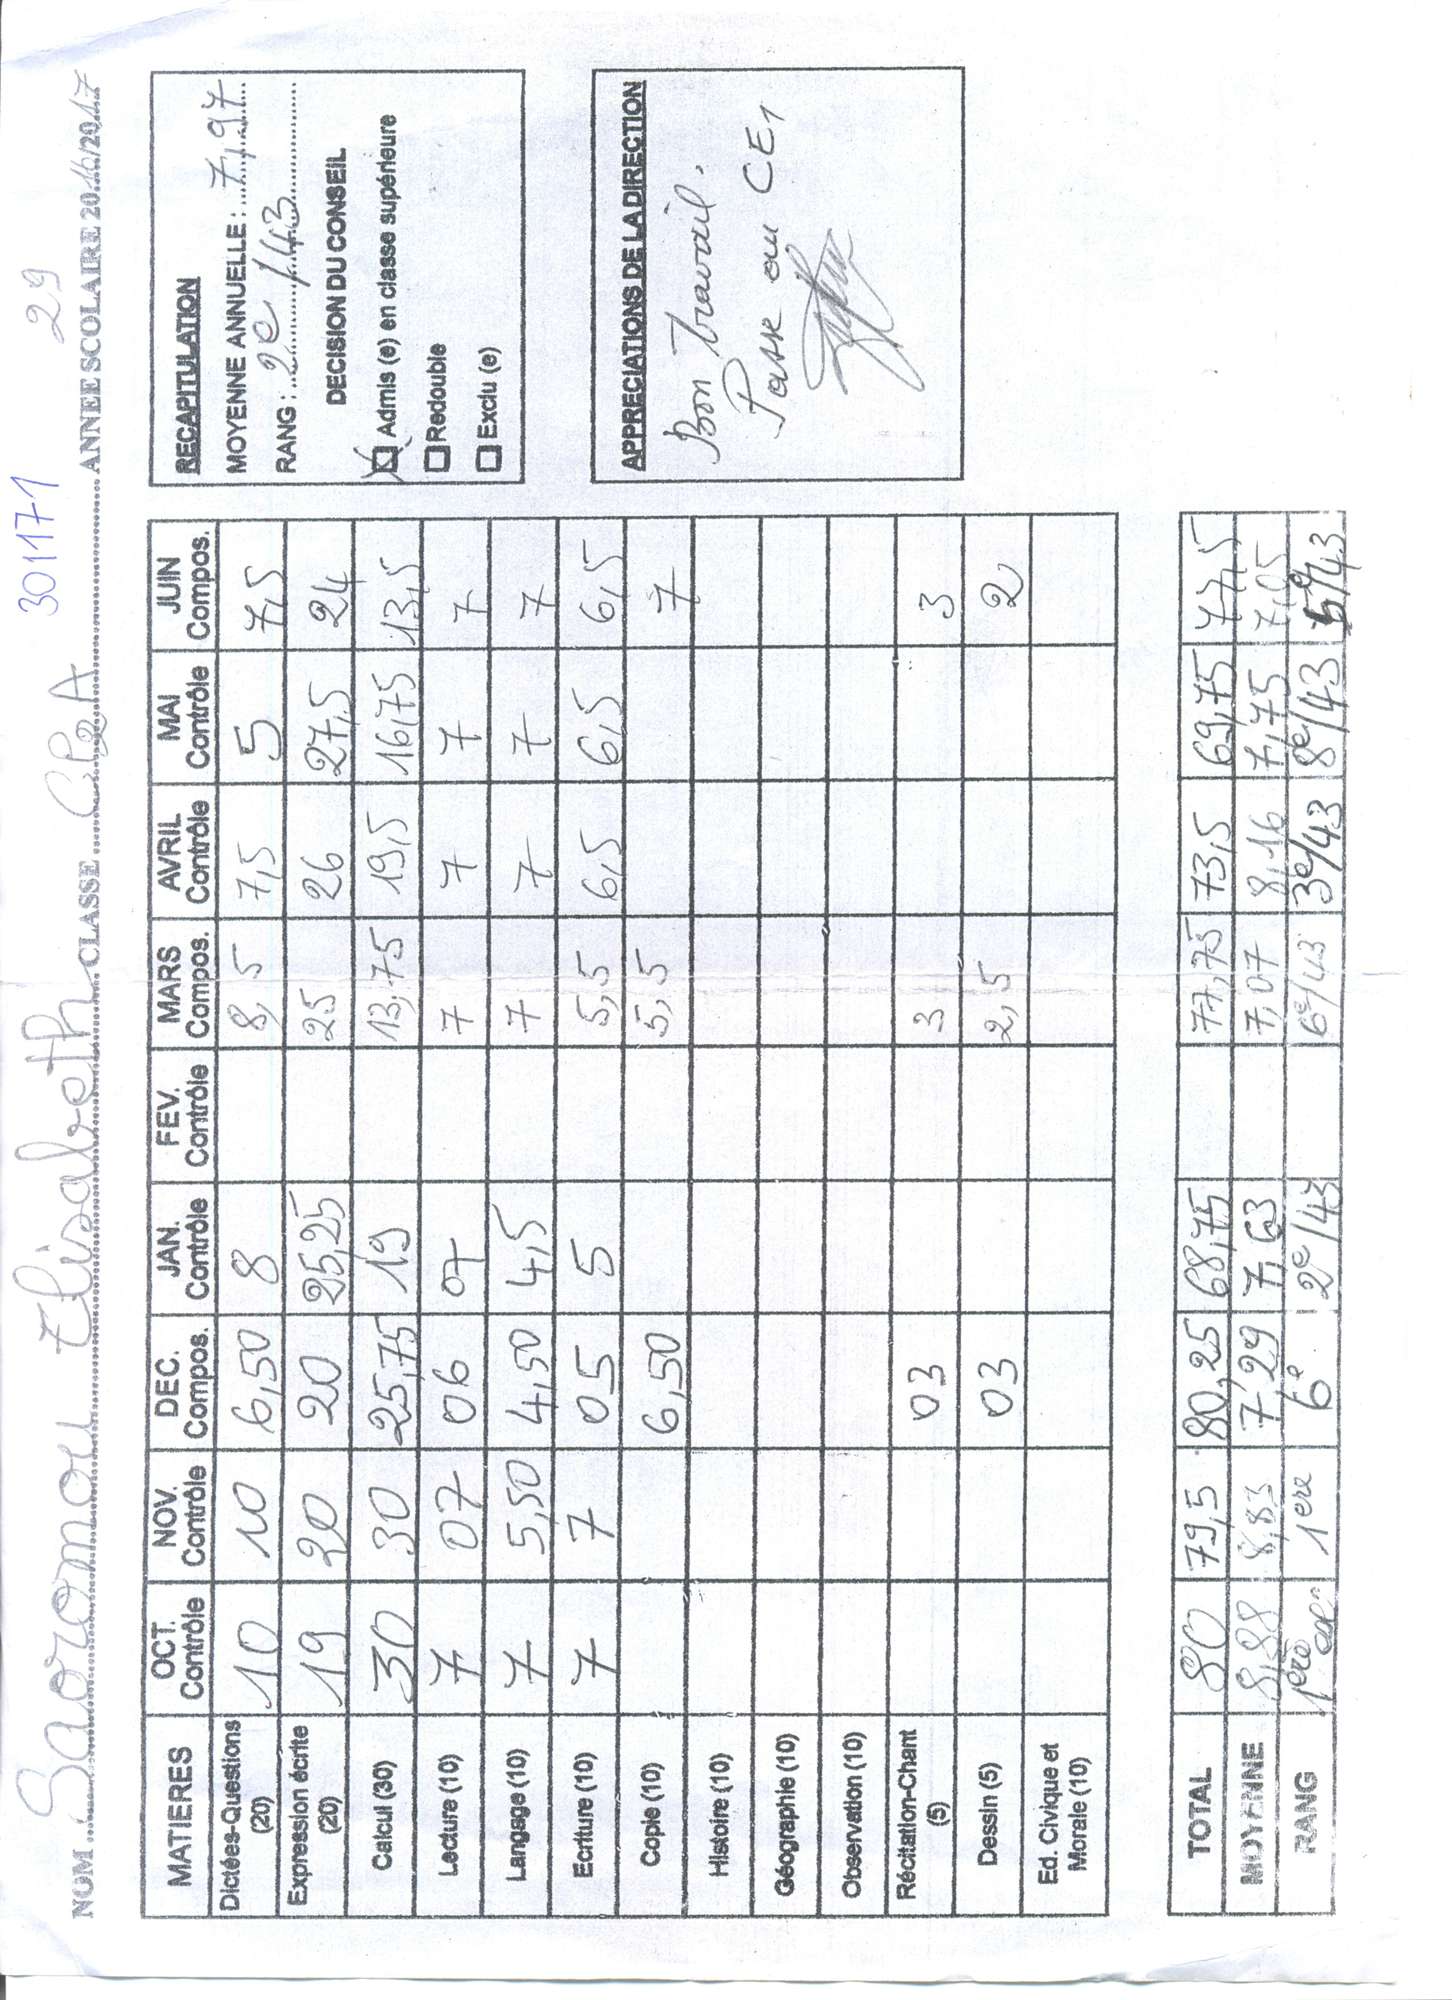 30117-1 29
NOM Saoromou Elisabeth CLASSE CP2A ANNEE SCOLAIRE 2016/2017
MATIERES OCT. Contrôle NOV. Contrôle DEC. Compos. JAN. Contrôle FEV. Contrôle MARS Compos. AVRIL Contrôle MAI Contrôle JUIN Compos.
Dictées-Questions (20) 10 10 6,50 8 8,5 7,5 5 7,5
Expression écrite (20) 19 20 20 25,25 25 26 27,5 24
Calcul (30) 30 30 25,75 19 13,75 19,5 16,75 13,5
Lecture (10) 7 07 06 07 7 7 7 7
Langage (10) 7 5,50 4,50 4,5 7 7 7 7
Ecriture (10) 7 7 05 5 5,5 6,5 6,5 6,5
Copie (10) 6,50 5,5 7
Histoire (10)
Géographie (10)
Observation (10)
Récitation-Chant (5) 03 3 3
Dessin (5) 03 2,5 2
Ed. Civique et Morale (10)
TOTAL 80 79,5 80,25 68,75 77,75 73,5 69,75 77,5
MOYENNE 8,88 8,83 7,29 7,63 7,07 8,16 7,75 7,05
RANG 1ère 1ere 6e 2e/43 6e/43 3e/43 8e/43 5e/43
RECAPITULATION
MOYENNE ANNUELLE : 7,97
RANG : 2e/43
DECISION DU CONSEIL
Admis (e) en classe supérieure
Redouble
Exclu (e)
APPRECIATIONS DE LA DIRECTION
Bon travail.
Passe au CE1